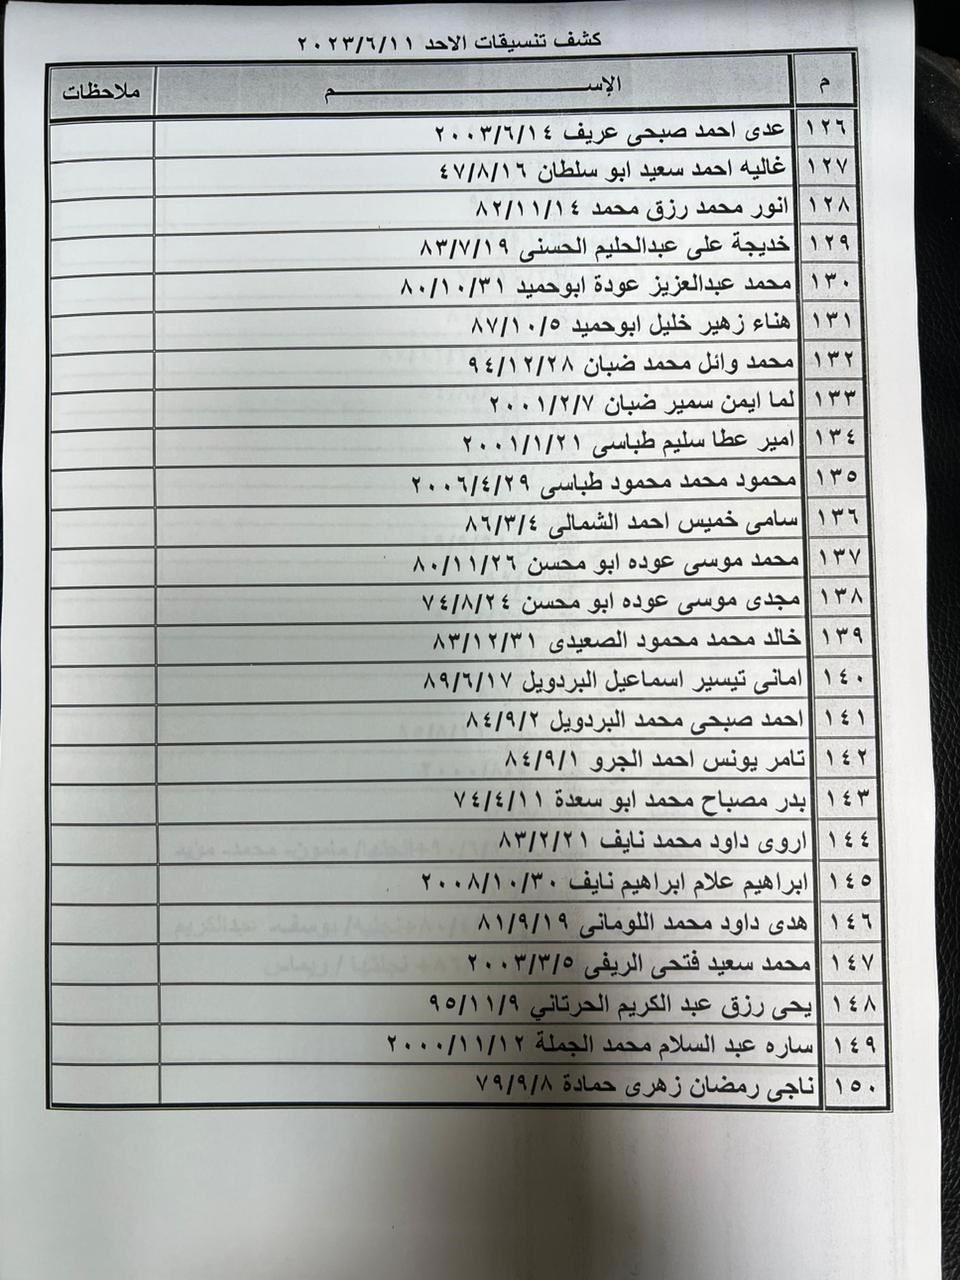 كشف تنسيقات الاحد ٢٠٢٣/٦/١١
م الإســـــــــم ملاحظات
١٢٦ عدى احمد صبحى عريف ٢٠٠٣/٦/١٤
١٢٧ غاليه احمد سعيد ابو سلطان ٤٧/٨/١٦
١٢٨ انور محمد رزق محمد ٨٢/١١/١٤
١٢٩ خديجة على عبدالحليم الحسنى ٨٣/٧/١٩
١٣٠ محمد عبدالعزيز عودة ابوحميد ٨٠/١٠/٣١
١٣١ هناء زهير خليل ابوحميد ٨٧/١٠/٥
١٣٢ محمد وائل محمد ضبان ٩٤/١٢/٢٨
١٣٣ لما ايمن سمير ضبان ٢٠٠١/٢/٧
١٣٤ امير عطا سليم طباسى ٢٠٠١/١/٢١
١٣٥ محمود محمد محمود طباسى ٢٠٠٦/٤/٢٩
١٣٦ سامى خميس احمد الشمالى ٨٦/٣/٤
١٣٧ محمد موسى عوده ابو محسن ٨٠/١١/٢٦
١٣٨ مجدى موسى عوده ابو محسن ٧٤/٨/٢٤
١٣٩ خالد محمد محمود الصعيدى ٨٣/١٢/٣١
١٤٠ امانى تيسير اسماعيل البردويل ٨٩/٦/١٧
١٤١ احمد صبحى محمد البردويل ٨٤/٩/٢
١٤٢ تامر يونس احمد الجرو ٨٤/٩/١
١٤٣ بدر مصباح محمد ابو سعدة ٧٤/٤/١١
١٤٤ اروى داود محمد نايف ٨٣/٢/٢١
١٤٥ ابراهيم علام ابراهيم نايف ٢٠٠٨/١٠/٣٠
١٤٦ هدى داود محمد اللومانى ٨١/٩/١٩
١٤٧ محمد سعيد فتحى الريفى ٢٠٠٣/٣/٥
١٤٨ يحى رزق عبد الكريم الحرتاني ٩٥/١١/٩
١٤٩ ساره عبد السلام محمد الجملة ٢٠٠٠/١١/١٢
١٥٠ ناجى رمضان زهرى حمادة ٧٩/٩/٨